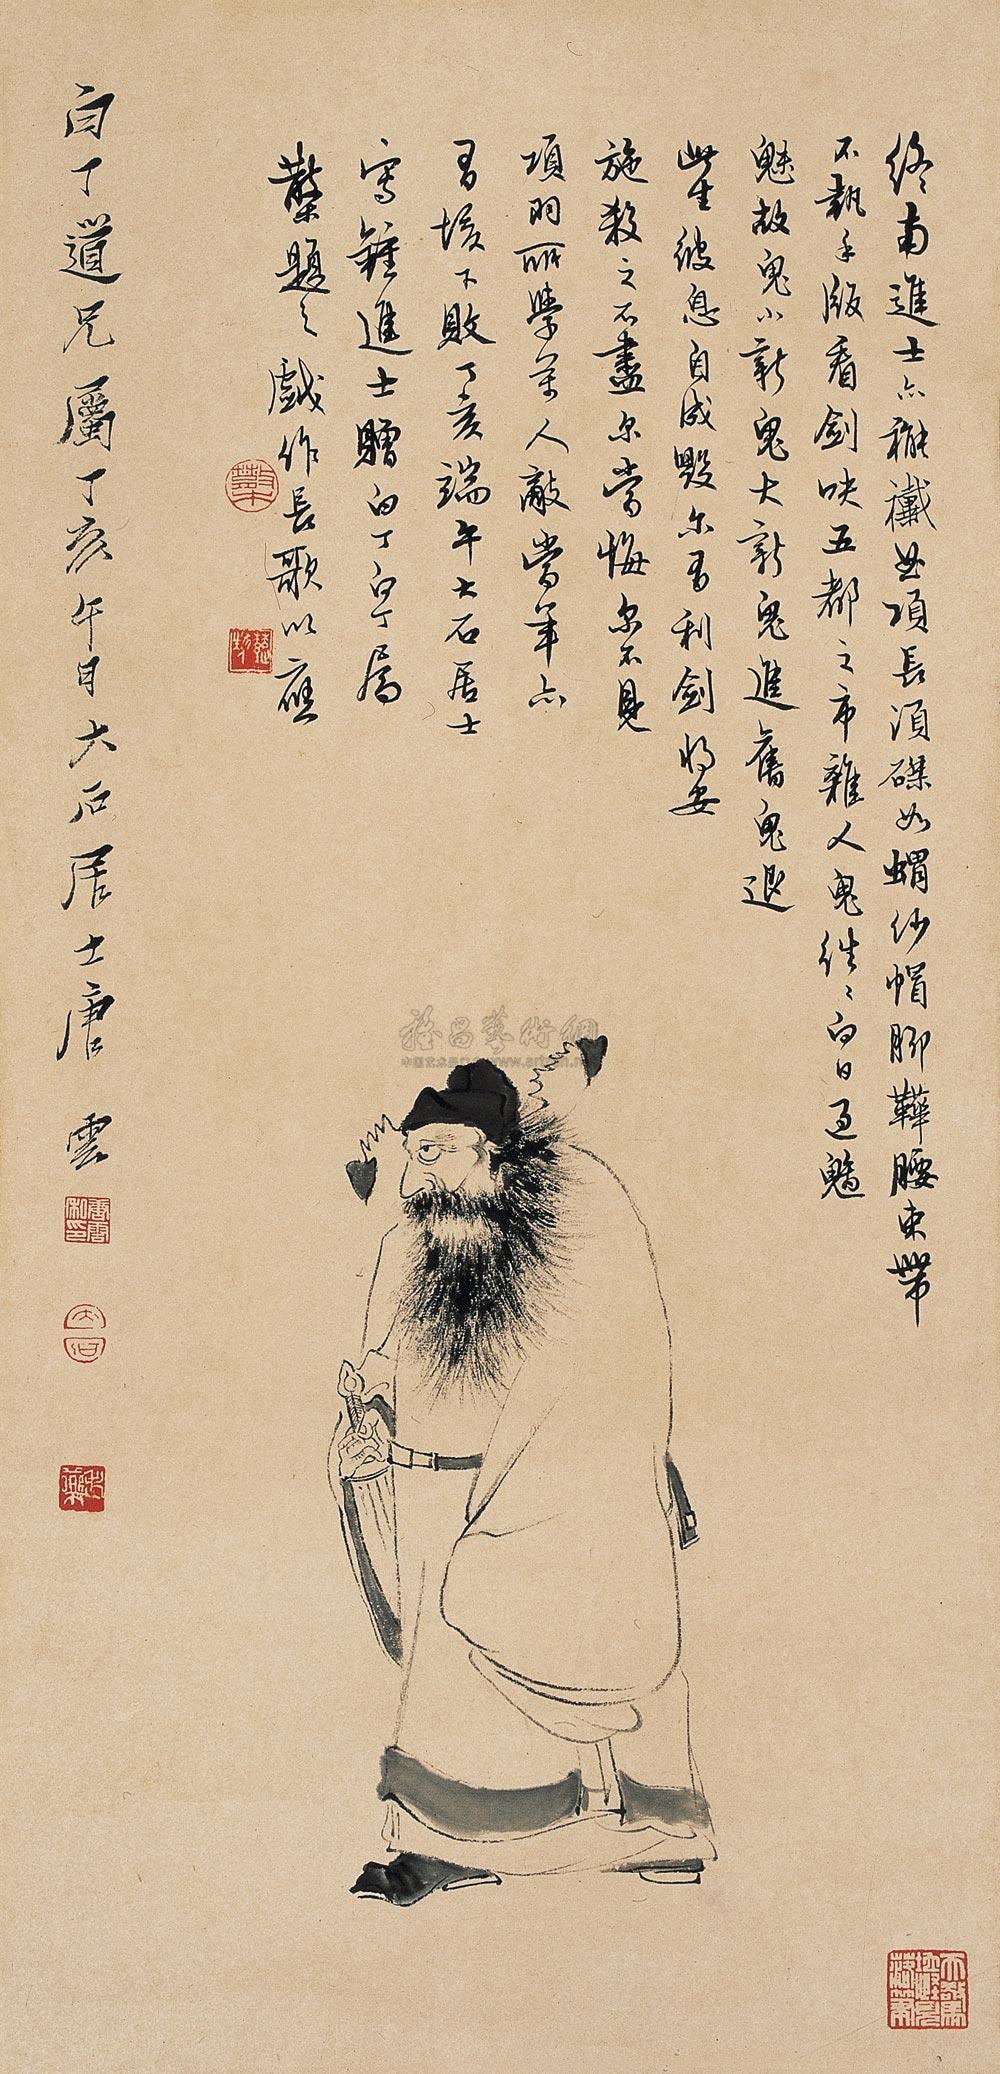 終南進士亦襤襶無項長須磔如蝟紗帽腳鞾腰束帶
不執手版看劍吷五都之市雜人鬼往々白日過魑
魅故鬼小新鬼大新鬼進舊鬼退
此生彼息自成毀尔有利劍將安
施殺之不盡尔當悔尔不見
項羽所學萬人敵當年亦
有垓下敗丁亥端午大石居士
寫鍾進士贈白丁白丁屬
槃題之戲作長歌以應
白丁道兄屬丁亥午月大石居士唐雲
www.artxun.net